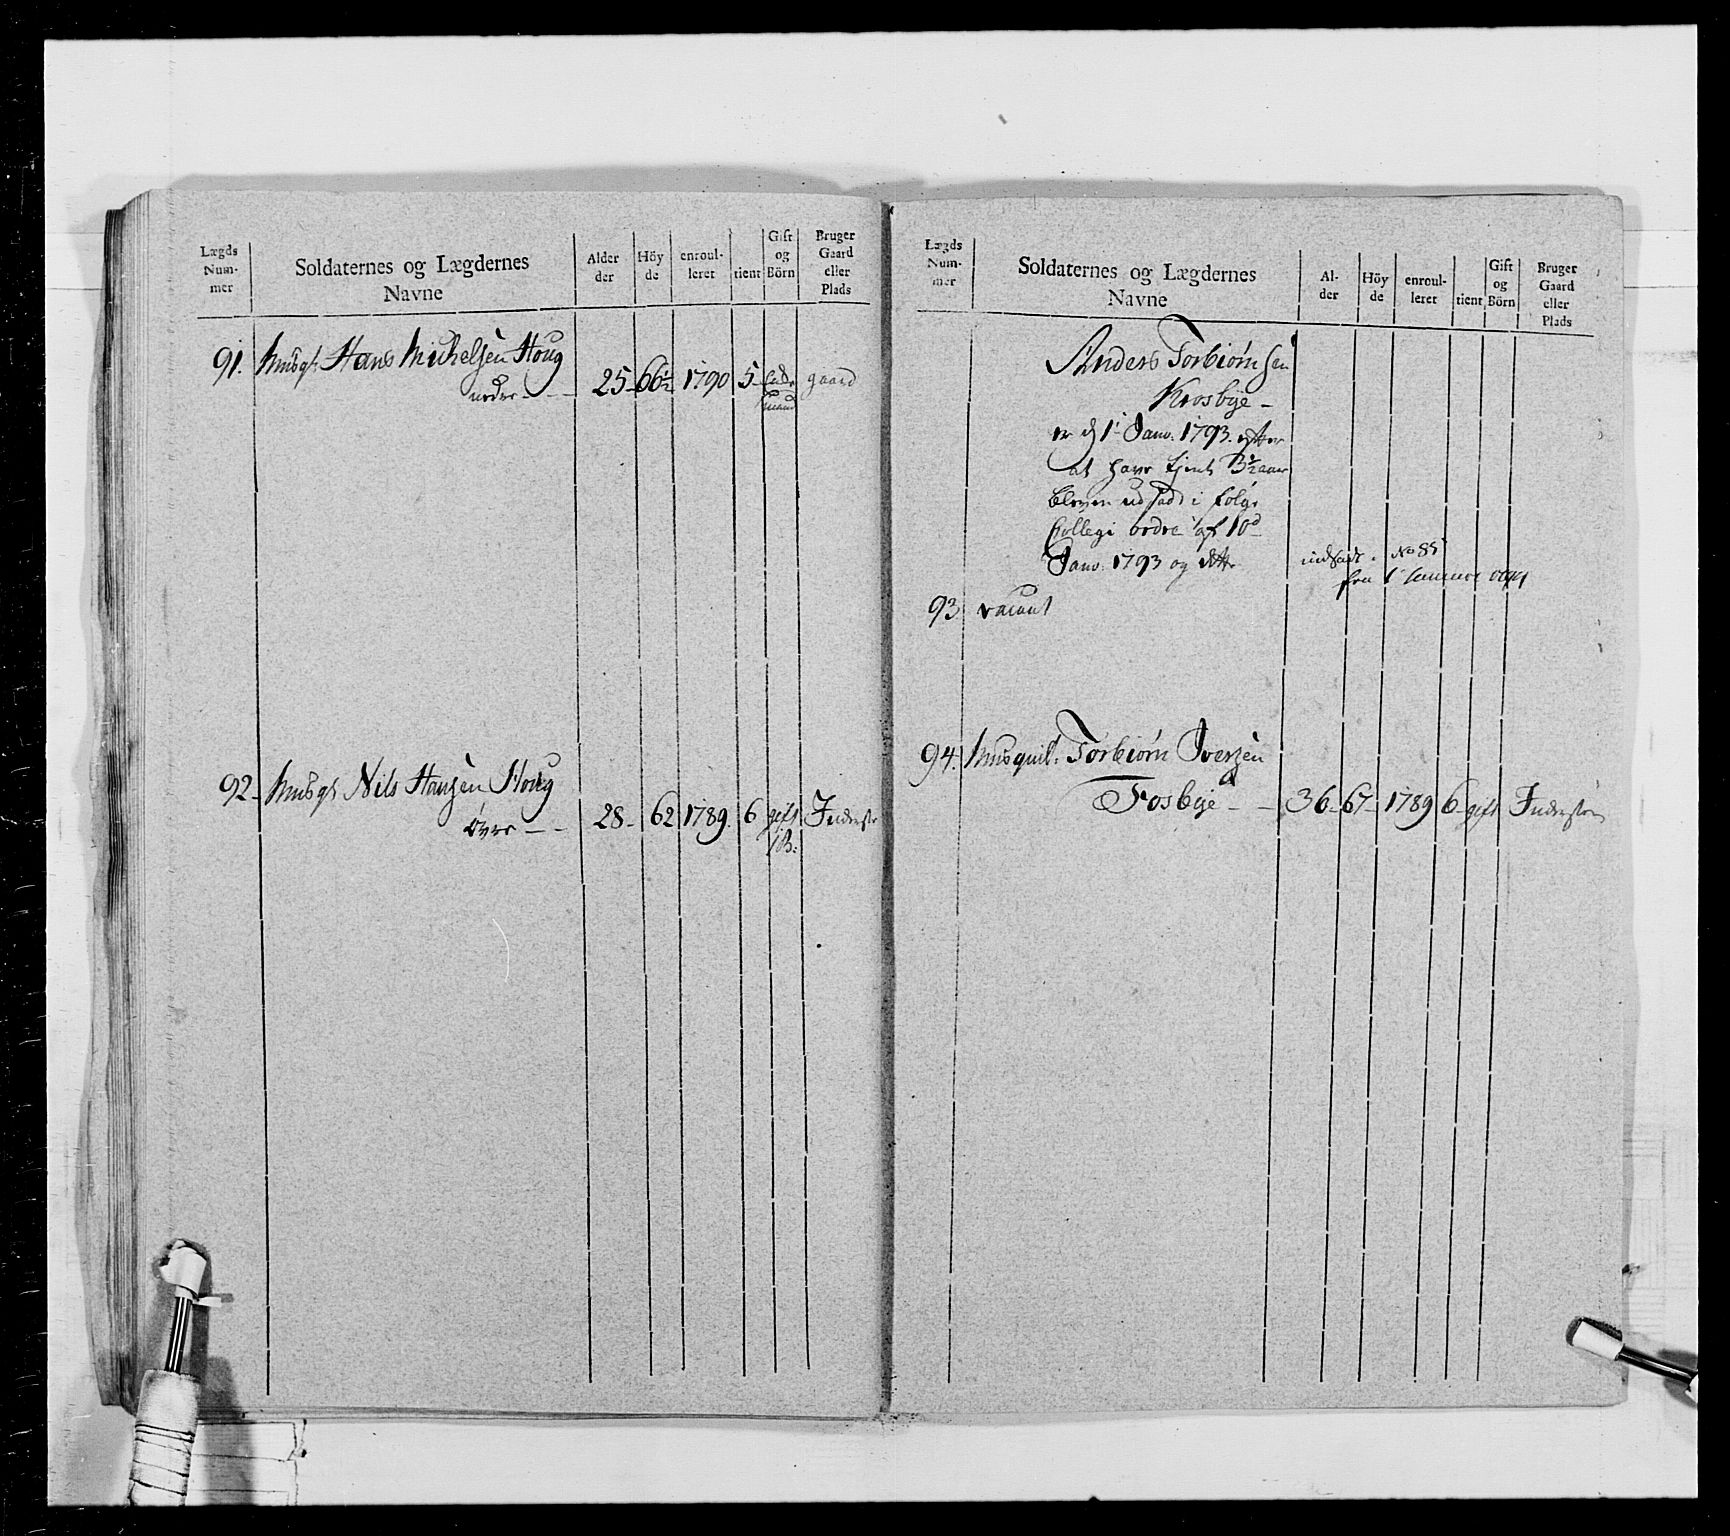 Lægds
Num-
mer
Soldaternes og Lægdernes
Navne
Alder
der
Höy
de
enroul-
leret
tient
Gift
og
Börn
Bruger
Gaard
eller
Plads
91. Musqt. Hans Michelsen Houg
nedre - - - 25 - 66½ 1790 5 - Enke gaard
mand
92 - Musqt Nils Hansen Houg
Øvre - - 28 - 62 1789. 6 gift Inderste
1 B:
Lægds
Num-
mer
Soldaternes og Lægdernes
Navne
Al-
der
Höy
de
enroul-
leret
tient
Gift
og
Börn
Bruger
Gaard
eller
Plads
Anders Torbiørnsen
Krosbye -
er d 1 Janv: 1793. efter
at have tient 3½ aar
bleven udsadt i følge
Collegi ordre af 10d
Janv: 1793 og dette indsadt. No 85
fra 1
93. vacant
94. Musquit: Torbiørn Iversen
Fosbye - - 36 - 67 - 1789 6 - gift Inderste